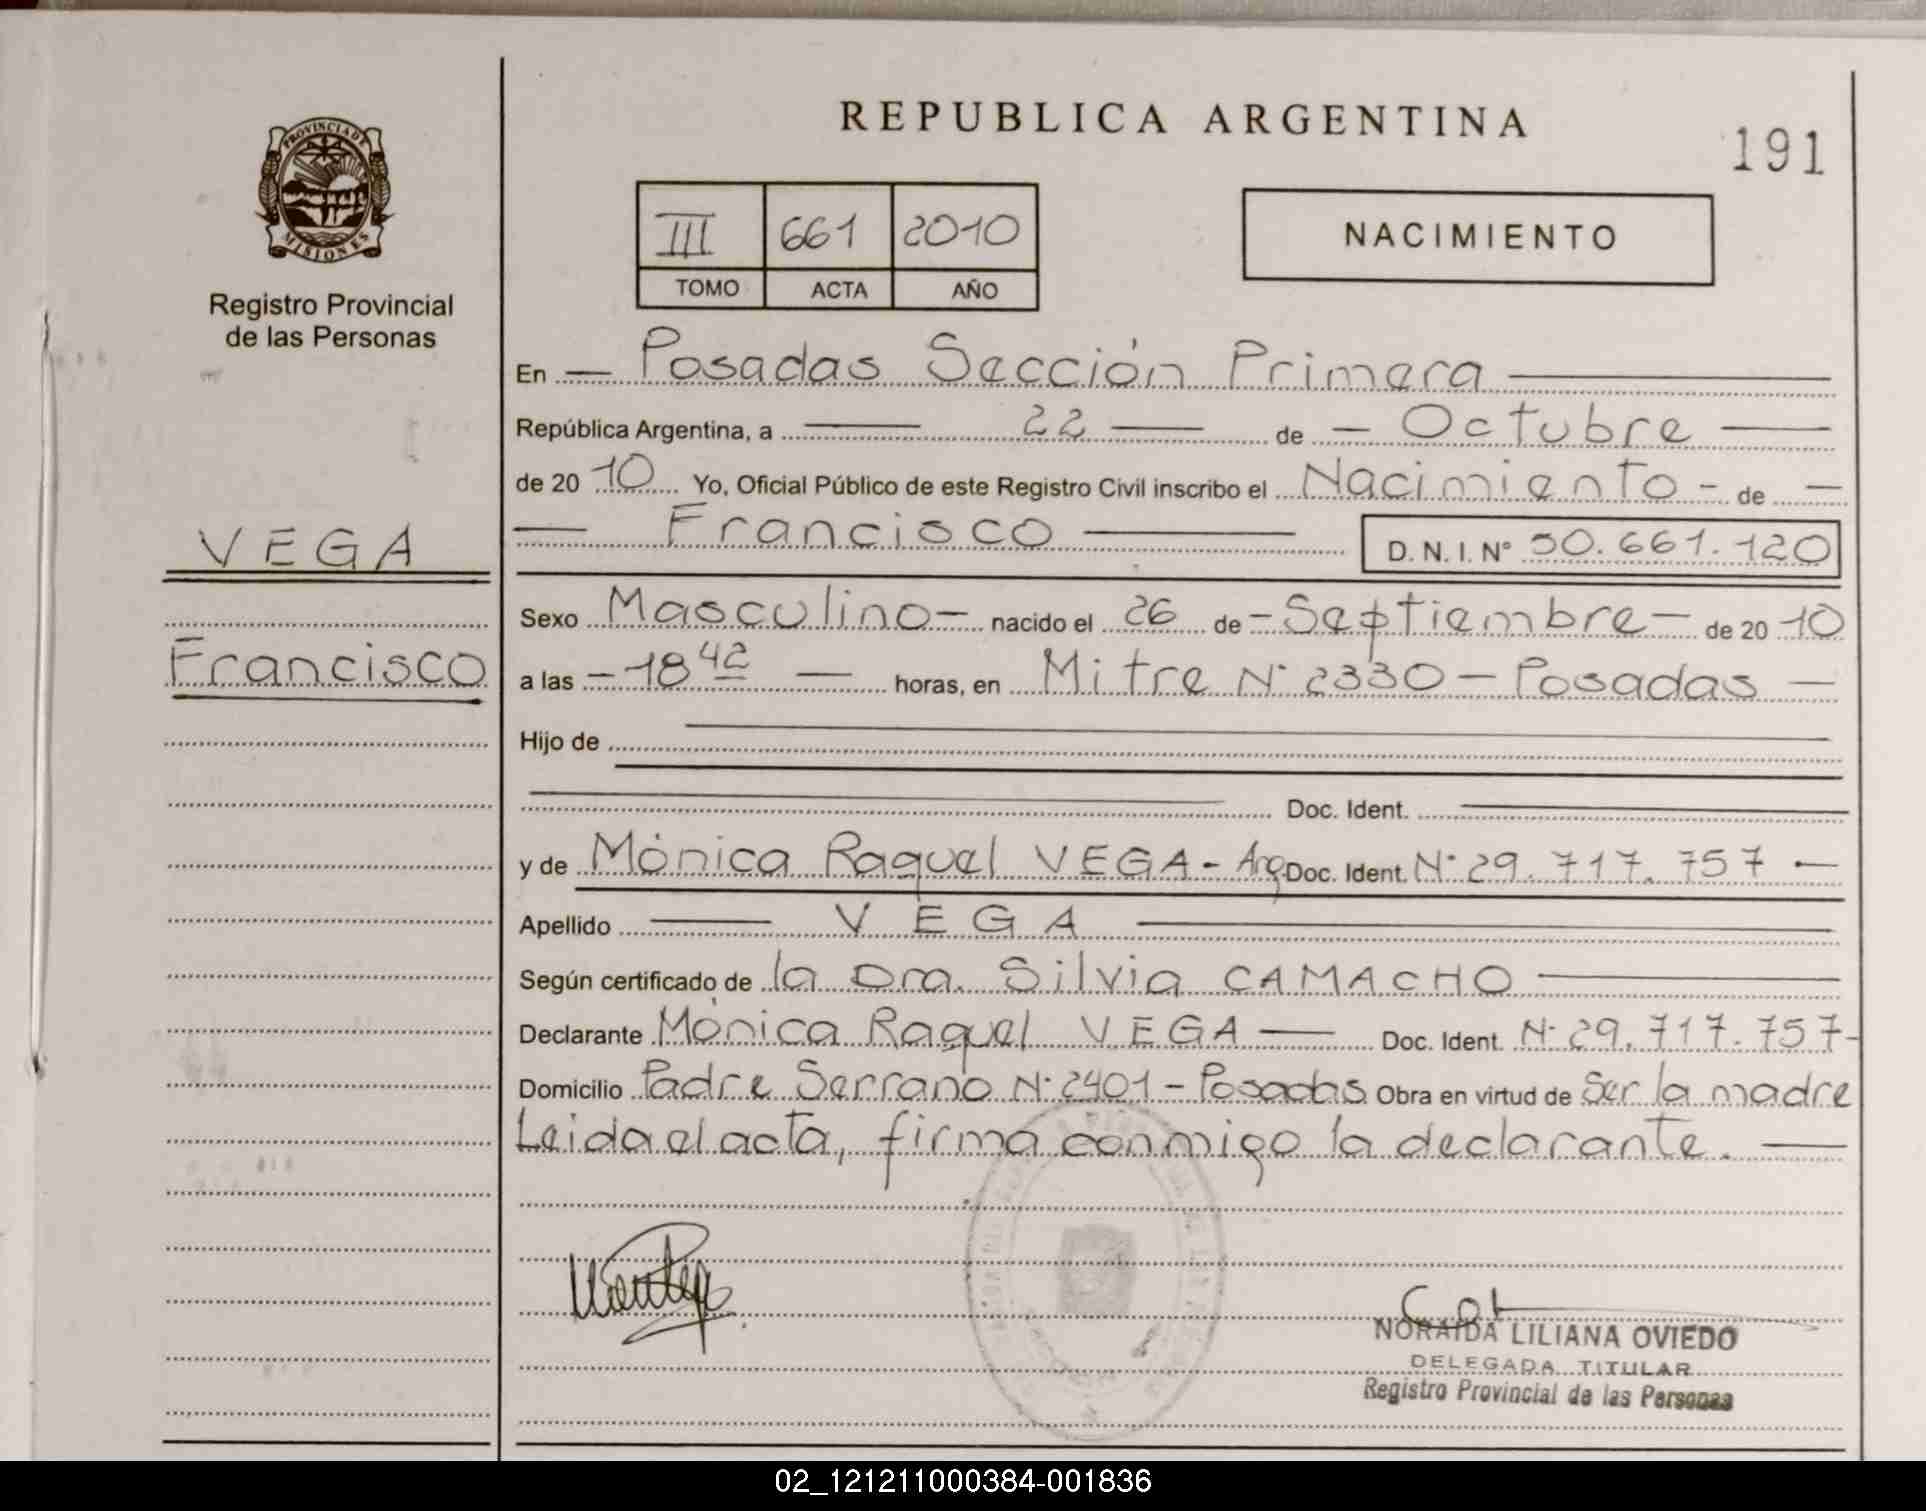 REPUBLICA ARGENTINA
191
PROVINCIA DE
MISIONES
Registro Provincial
de las Personas
III 661 2010
TOMO ACTA AÑO
NACIMIENTO
En Posadas Sección Primera
República Argentina, a 22 de Octubre
de 2010 Yo, Oficial Público de este Registro Civil inscribo el Nacimiento de
Francisco D. N. I. N° 50.661.120
VEGA
Francisco
Sexo Masculino nacido el 26 de Septiembre de 2010
a las 18 42 horas, en Mitre N° 2330 - Posadas
Hijo de
Doc. Ident.
y de Mónica Raquel VEGA - Arg. Doc. Ident. N° 29.717.757
Apellido VEGA
Según certificado de la Dra. Silvia CAMACHO
Declarante Mónica Raquel VEGA Doc. Ident. N° 29.717.757
Domicilio Padre Serrano N° 2401 - Posadas Obra en virtud de ser la madre
Leida el acta, firma conmigo la declarante.
NORAIDA LILIANA OVIEDO
DELEGADA TITULAR
Registro Provincial de las Personas
02_121211000384-001836